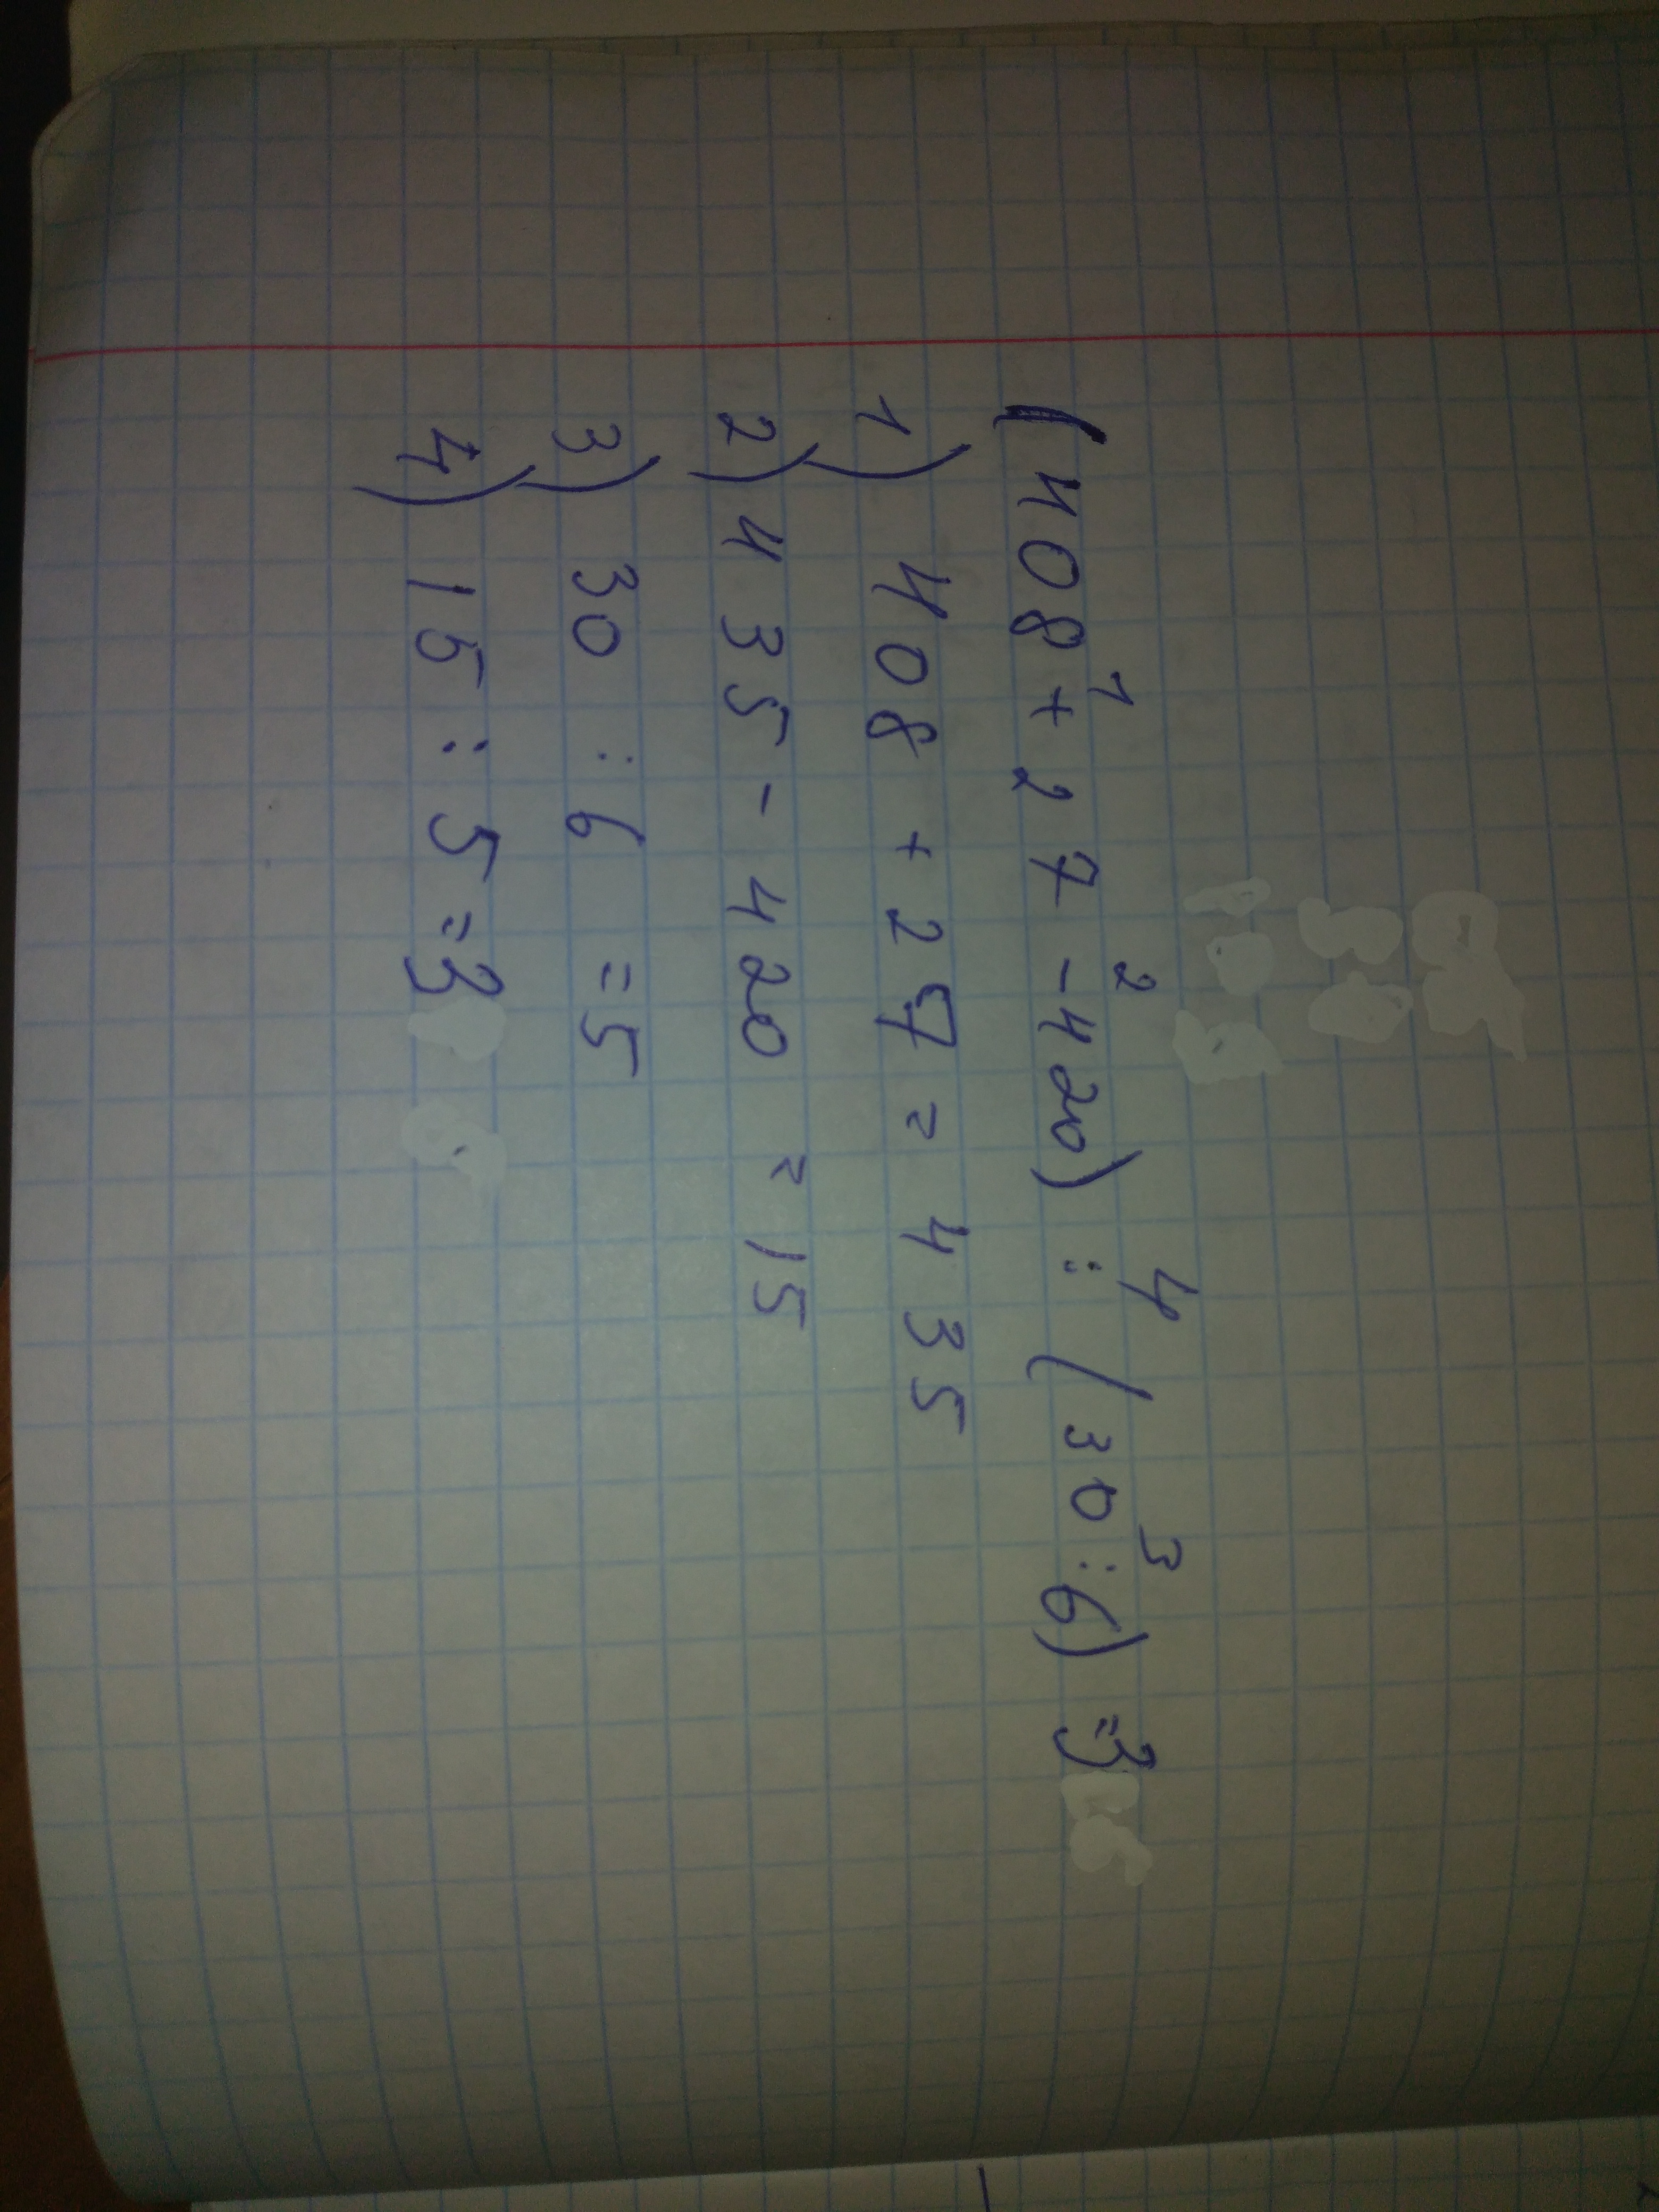 1 2 4 3
(408+27-420):(30:6)=3
1) 408+27=435
2) 435-420=15
3) 30:6=5
4) 15:5=3